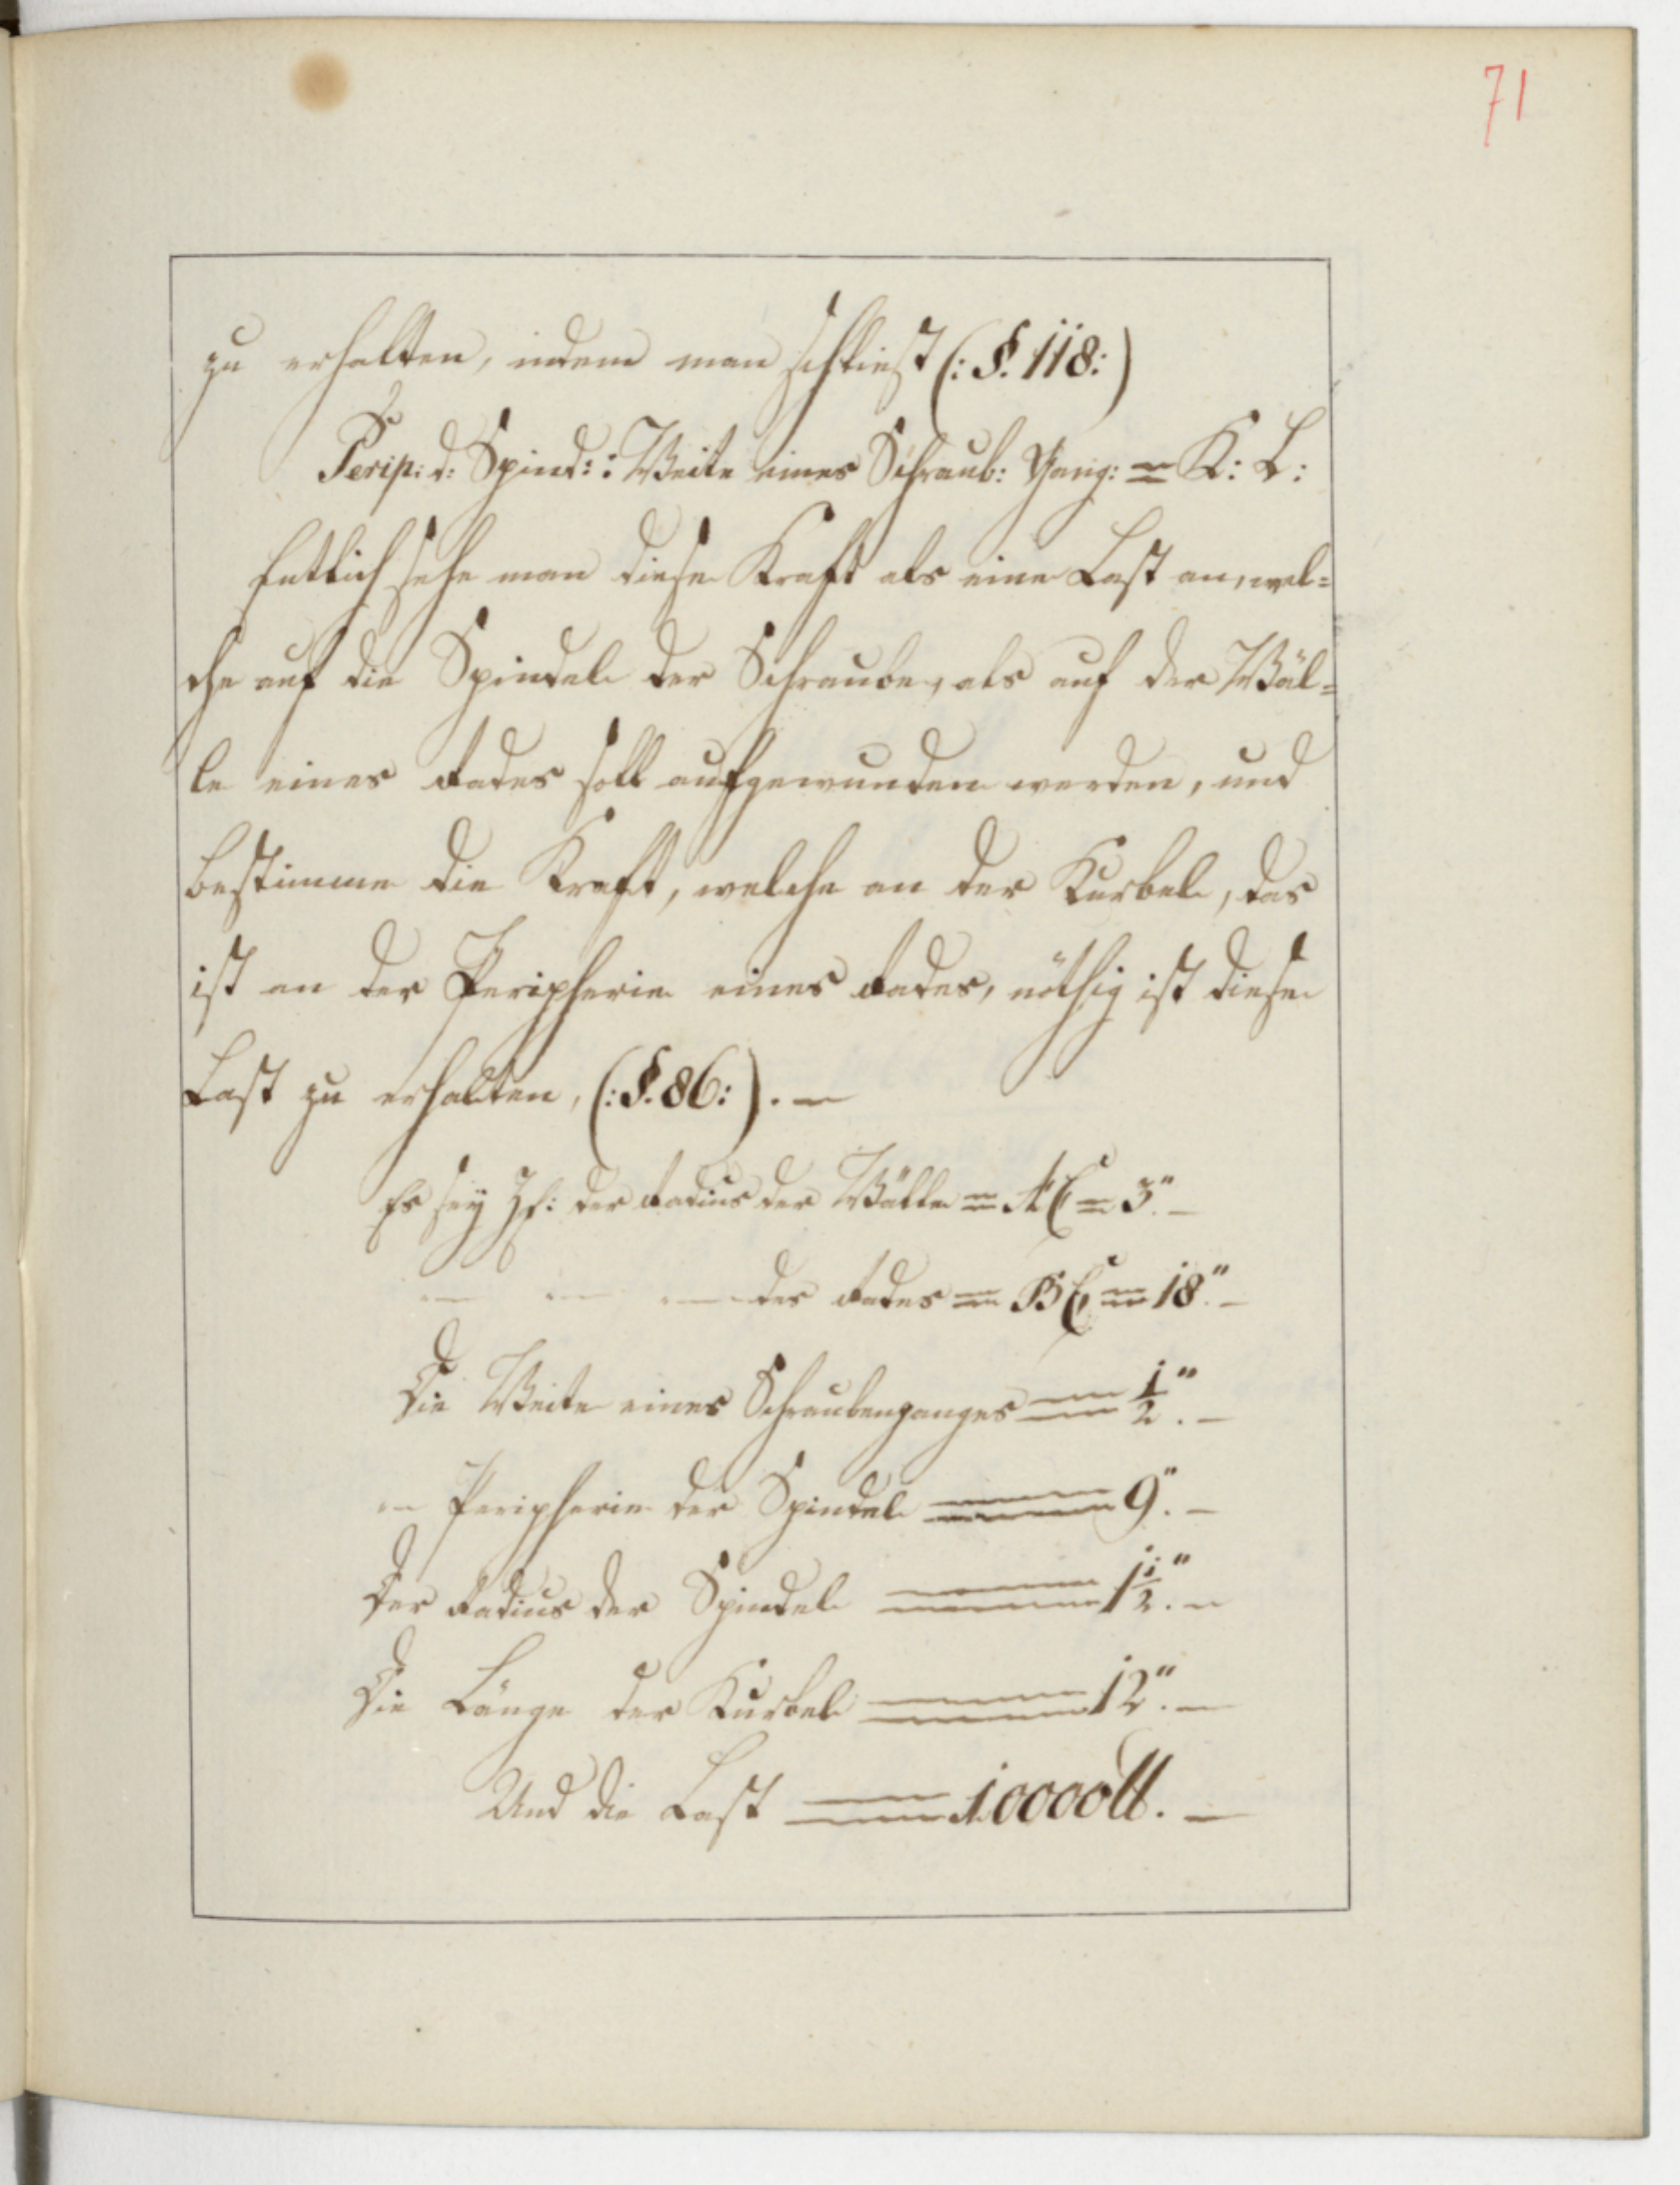 71
zu erhalten, indem man schliest (: §. 118:)
Perip: d: Spind: : Weite eines Schraub: Gang: = K: L:
Entlich sehe man diese Kraft als eine Last an, wel=
che auf die Spindel der Schraube, als auf der Wäl=
le eines Rades soll aufgewunden werden, und
bestimme die Kraft, welche an der Kurbel, das
ist an der Peripherie eines Rades, nöthig ist diese
Last zu erhalten, (: §. 86:). —
Es sey Zf: der Radius der Wälle = AC = 3". —
— — — des Rades = BC = 18". —
Die Weite eines Schraubenganges = 1/2". —
— Peripherie der Spindel = 9". —
Der Radius der Spindel = 1 1/2". —
Die Länge der Kurbel = 12". —
Und die Last = 10000 ℔. —